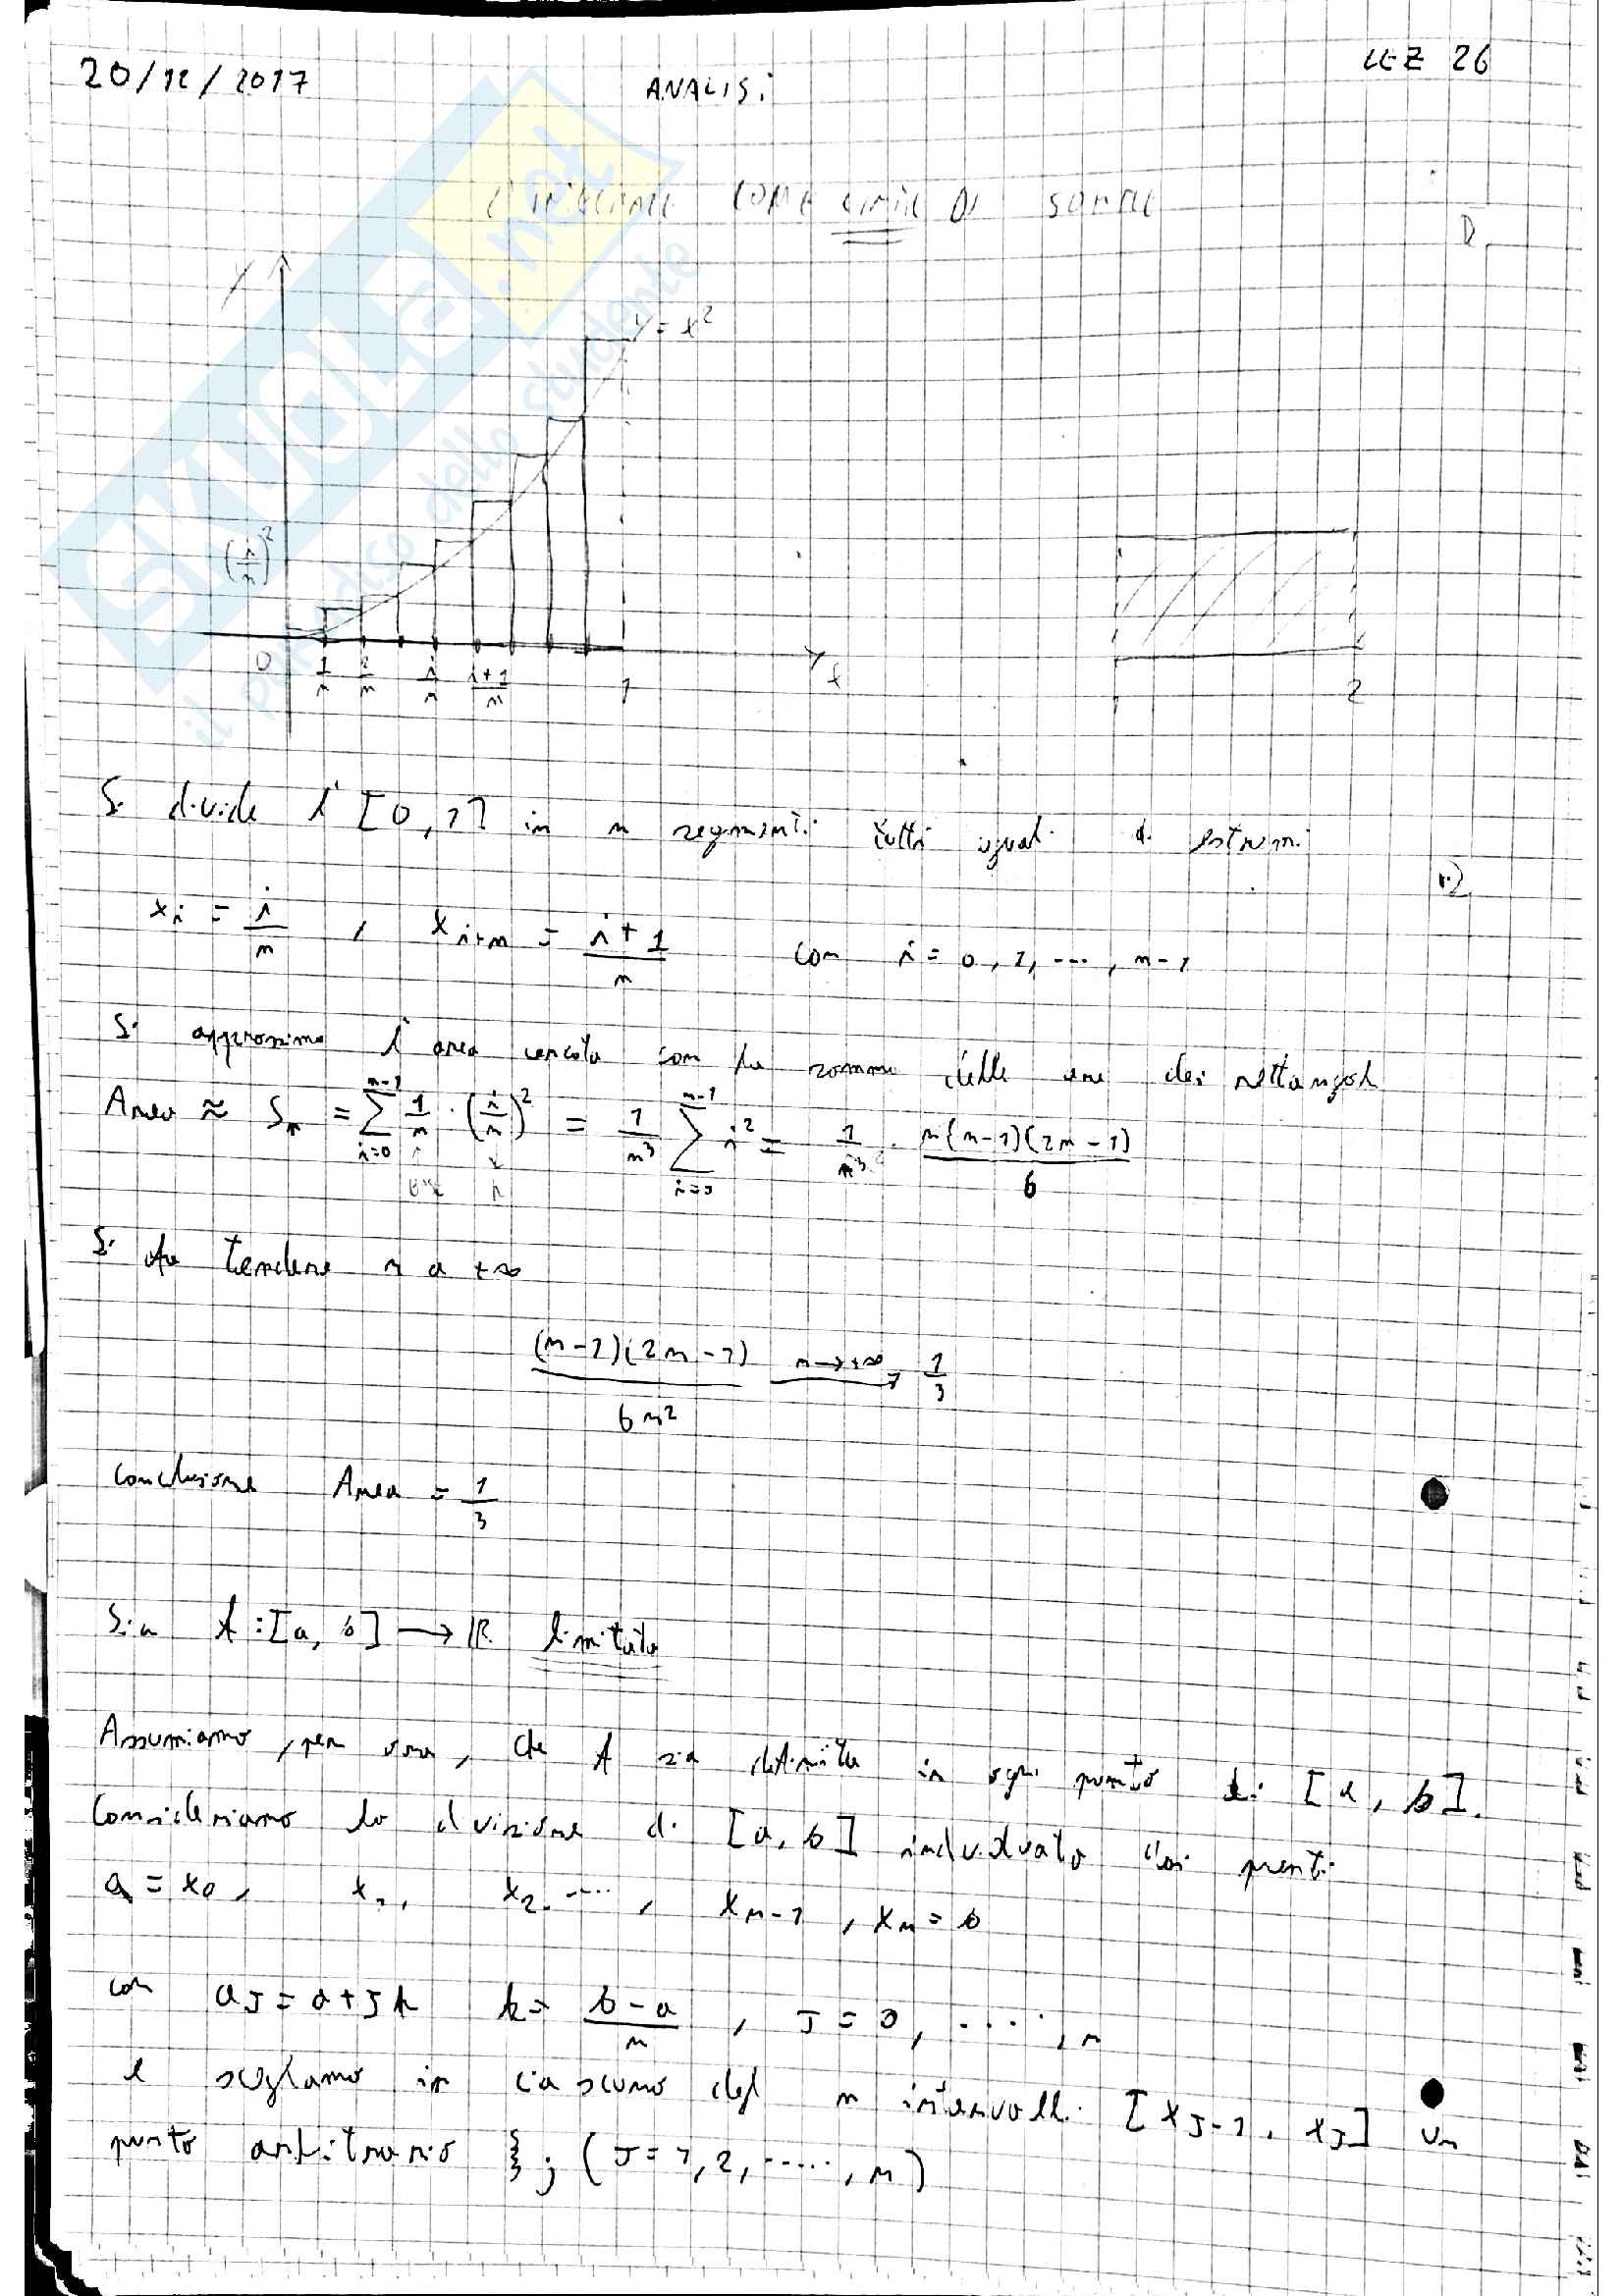 20/12/2017
ANALISi
LEZ 26
L'INTEGRALE COME LIMITE DI SOMME
D
SKUOLA.net
il paradiso dello studente
y
y = x²
(i/n)²
0 1/n 2/n i/n i+1/n 1 x
2
Si divide l' [0,1] in n segmenti tutti uguali di estremi
xi = i/n , xi+n = i+1/n con i = 0, 1, ..., n-1
Si approssima l'area cercata con la somma delle aree dei rettangoli
Area ≈ Sn = ∑ i=0 n-1 1/n · (i/n)² = 1/n³ ∑ i=0 n-1 i² = 1/n³ · n(n-1)(2n-1)/6
base h
Si fa tendere n a +∞
(n-1)(2n-1)/6n² n→+∞ 1/3
Conclusione Area = 1/3
Sia f:[a, b] → ℝ limitata
Assumiamo, per ora, che f sia definita in ogni punto di [a, b].
Consideriamo la divisione di [a, b] individuata dai punti
a = x0, x1, x2, ...., xn-1, xn = b
con aJ = a + Jh h = b-a/n , J = 0, ....., n
e scegliamo in ciascuno degli n intervalli [xJ-1, xJ] un
punto arbitrario ξj (J = 1, 2, ....., n)